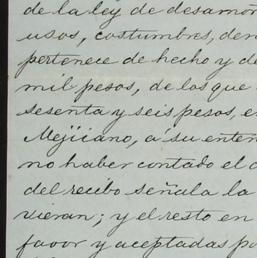 de la ley de desamor
usos, costumbres, der
pertenece de hecho y de
mil pesos, de los que
sesenta y seis pesos, en
Mejiiano, a' su enten
no haber contado el d
del recibo señala la
vieran; y el resto en
favor y aceptadas po